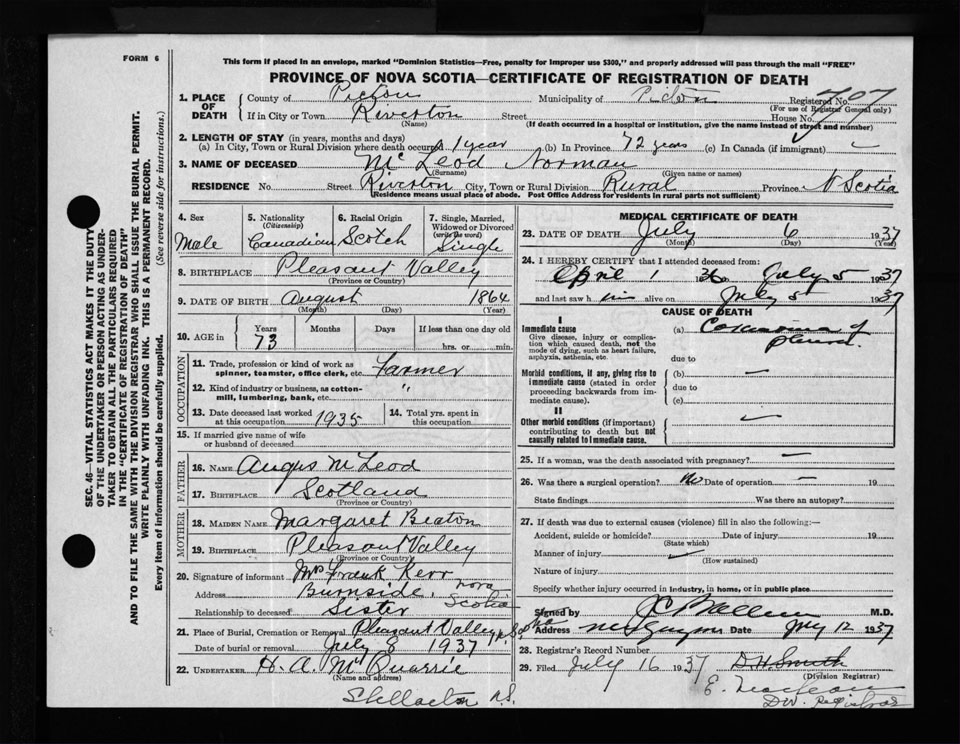 FORM 6
This form if placed in an envelope, marked "Dominion Statistics—Free, penalty for improper use $300," and properly addressed will pass through the mail "FREE"
PROVINCE OF NOVA SCOTIA—CERTIFICATE OF REGISTRATION OF DEATH
1. PLACE OF DEATH County of Pictou Municipality of Pictou Registered No. 707
(For use of Registrar General only)
If in City or Town Riverton Street House No.
(Name) (If death occurred in a hospital or institution, give the name instead of street and number)
2. LENGTH OF STAY (in years, months and days)
(a) In City, Town or Rural Division where death occurred 1 year (b) In Province 72 years (c) In Canada (if immigrant)
3. NAME OF DECEASED McLeod Norman
(Surname) (Given name or names)
RESIDENCE No. Street Riverton City, Town or Rural Division Rural Province N Scotia
(Residence means usual place of abode. Post Office Address for residents in rural parts not sufficient)
4. Sex Male
5. Nationality (Citizenship) Canadian
6. Racial Origin Scotch
7. Single, Married, Widowed or Divorced (write the word) Single
8. BIRTHPLACE Pleasant Valley
(Province or Country)
9. DATE OF BIRTH August 1864
(Month) (Day) (Year)
10. AGE in Years 73 Months Days If less than one day old hrs. or min.
OCCUPATION
11. Trade, profession or kind of work as spinner, teamster, office clerk, etc. Farmer
12. Kind of industry or business, as cotton-mill, lumbering, bank, etc. "
13. Date deceased last worked at this occupation 1935 14. Total yrs. spent in this occupation
15. If married give name of wife or husband of deceased
FATHER
16. NAME Angus McLeod
17. BIRTHPLACE Scotland
(Province or Country)
MOTHER
18. MAIDEN NAME Margaret Beaton
19. BIRTHPLACE Pleasant Valley
(Province or Country)
20. Signature of informant Mrs Frank Kerr
Address Burnside, Nova Scotia
Relationship to deceased Sister
21. Place of Burial, Cremation or Removal Pleasant Valley N. Scotia
Date of burial or removal July 8 1937
22. UNDERTAKER H. A. McQuarrie
(Name and address)
Stellarton N.S.
MEDICAL CERTIFICATE OF DEATH
23. DATE OF DEATH July 6 1937
(Month) (Day) (Year)
24. I HEREBY CERTIFY that I attended deceased from:
April 1 36 to July 5 1937
and last saw him alive on July 5 1937
CAUSE OF DEATH
I
Immediate cause (a) Carcinoma of pleura.
Give disease, injury or complication which caused death, not the mode of dying, such as heart failure, asphyxia, asthenia, etc.
due to
Morbid conditions, if any, giving rise to immediate cause (stated in order proceeding backwards from immediate cause). (b) —
due to
(c)
II
Other morbid conditions (if important) contributing to death but not causally related to immediate cause.
25. If a woman, was the death associated with pregnancy? —
26. Was there a surgical operation? No Date of operation — 19
State findings Was there an autopsy?
27. If death was due to external causes (violence) fill in also the following:—
Accident, suicide or homicide? Date of injury 19
(State which)
Manner of injury
(How sustained)
Nature of injury
Specify whether injury occurred in industry, in home, or in public place
Signed by M.D.
Address Date July 12 1937
28. Registrar's Record Number
29. Filed July 16 1937 D H Smith
(Division Registrar)
E.
Div. Registrar
SEC. 46—VITAL STATISTICS ACT MAKES IT THE DUTY
OF THE UNDERTAKER OR PERSON ACTING AS UNDER-
TAKER TO OBTAIN ALL THE PARTICULARS REQUIRED
IN THE "CERTIFICATE OF REGISTRATION OF DEATH"
AND TO FILE THE SAME WITH THE DIVISION REGISTRAR WHO SHALL ISSUE THE BURIAL PERMIT.
WRITE PLAINLY WITH UNFADING INK. THIS IS A PERMANENT RECORD.
Every item of information should be carefully supplied. (See reverse side for instructions.)